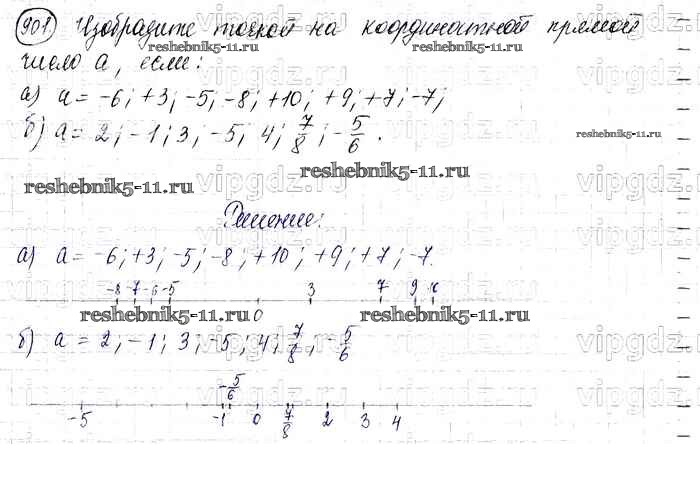 901. Изобразите точкой на координатной прямой
reshebnik5-11.ru reshebnik5-11.ru
число а, если:
vipgdz.ru vipgdz.ru vipgdz.ru
а) a = -6; +3; -5; -8; +10; +9; +7; -7;
б) a = 2; -1; 3; -5; 4; 7/8; -5/6.
reshebnik5-11.ru
reshebnik5-11.ru
reshebnik5-11.ru
vipgdz.ru vipgdz.ru
Решение:
а) a = -6; +3; -5; -8; +10; +9; +7; -7.
vipgdz.ru vipgdz.ru
-8 -7 -6 -5 0 3 7 9 10
reshebnik5-11.ru reshebnik5-11.ru
б) a = 2; -1; 3; -5; 4; 7/8; -5/6
vipgdz.ru vipgdz.ru
-5/6
-5 -1 0 7/8 2 3 4
vipgdz.ru vipgdz.ru